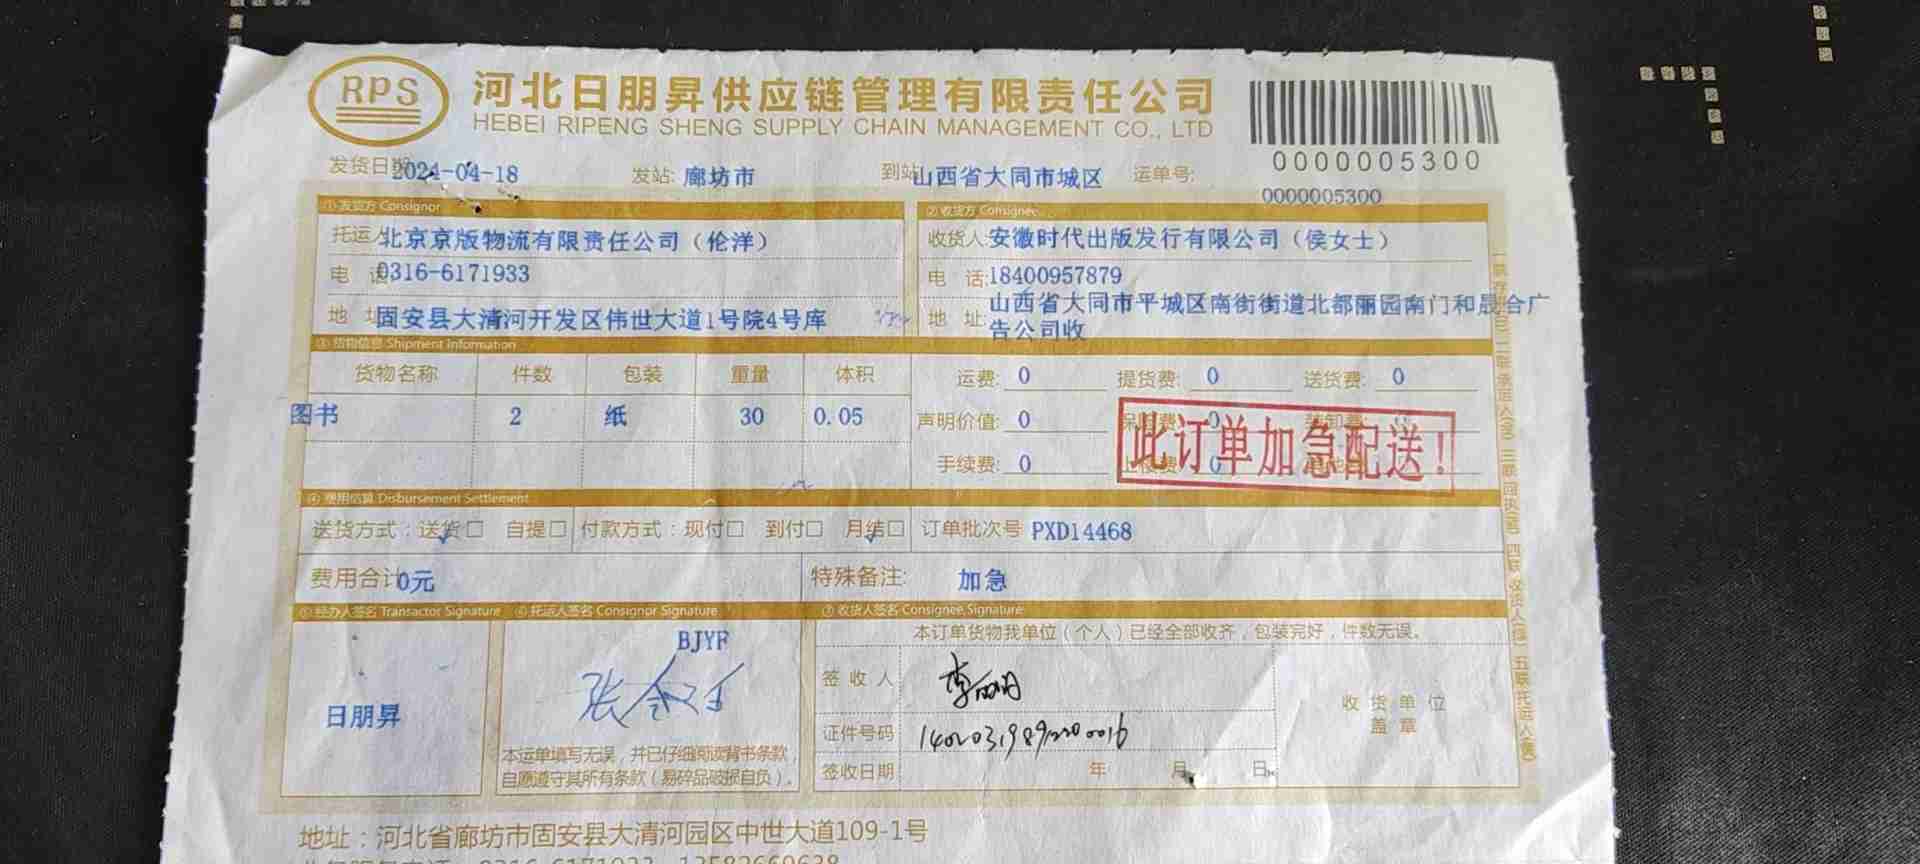 RPS 河北日朋昇供应链管理有限责任公司
HEBEI RIPENG SHENG SUPPLY CHAIN MANAGEMENT CO., LTD
0000005300
发货日期 2024-04-18 发站: 廊坊市 到站 山西省大同市城区 运单号:
0000005300
①发货方 Consignor ②收货方 Consignee
托运人 北京京版物流有限责任公司（伦洋） 收货人: 安徽时代出版发行有限公司（侯女士）
电 话 0316-6171933 电 话: 18400957879
地 址 固安县大清河开发区伟世大道1号院4号库 地 址: 山西省大同市平城区南街街道北都丽园南门和晟合广
告公司收
③货物信息 Shipment Information
货物名称 件数 包装 重量 体积 运费: 0 提货费: 0 送货费: 0
图书 2 纸 30 0.05 声明价值: 0 保险费: 0 装卸费:
手续费: 0
此订单加急配送!
④费用结算 Disbursement Settlement
送货方式: 送货□ 自提□ 付款方式: 现付□ 到付□ 月结□ 订单批次号 PXD14468
费用合计 0元 特殊备注: 加急
⑤经办人签名 Transactor Signature ⑥托运人签名 Consignor Signature ⑦收货人签名 Consignee Signature
本订单货物我单位（个人）已经全部收齐，包装完好，件数无误。
BJYF
日朋昇
签 收 人
收 货 单 位
盖 章
证件号码
本运单填写无误，并已仔细阅读背书条款，
自愿遵守其所有条款（易碎品破损自负）。
签收日期 年 月 日
地址：河北省廊坊市固安县大清河园区中世大道109-1号